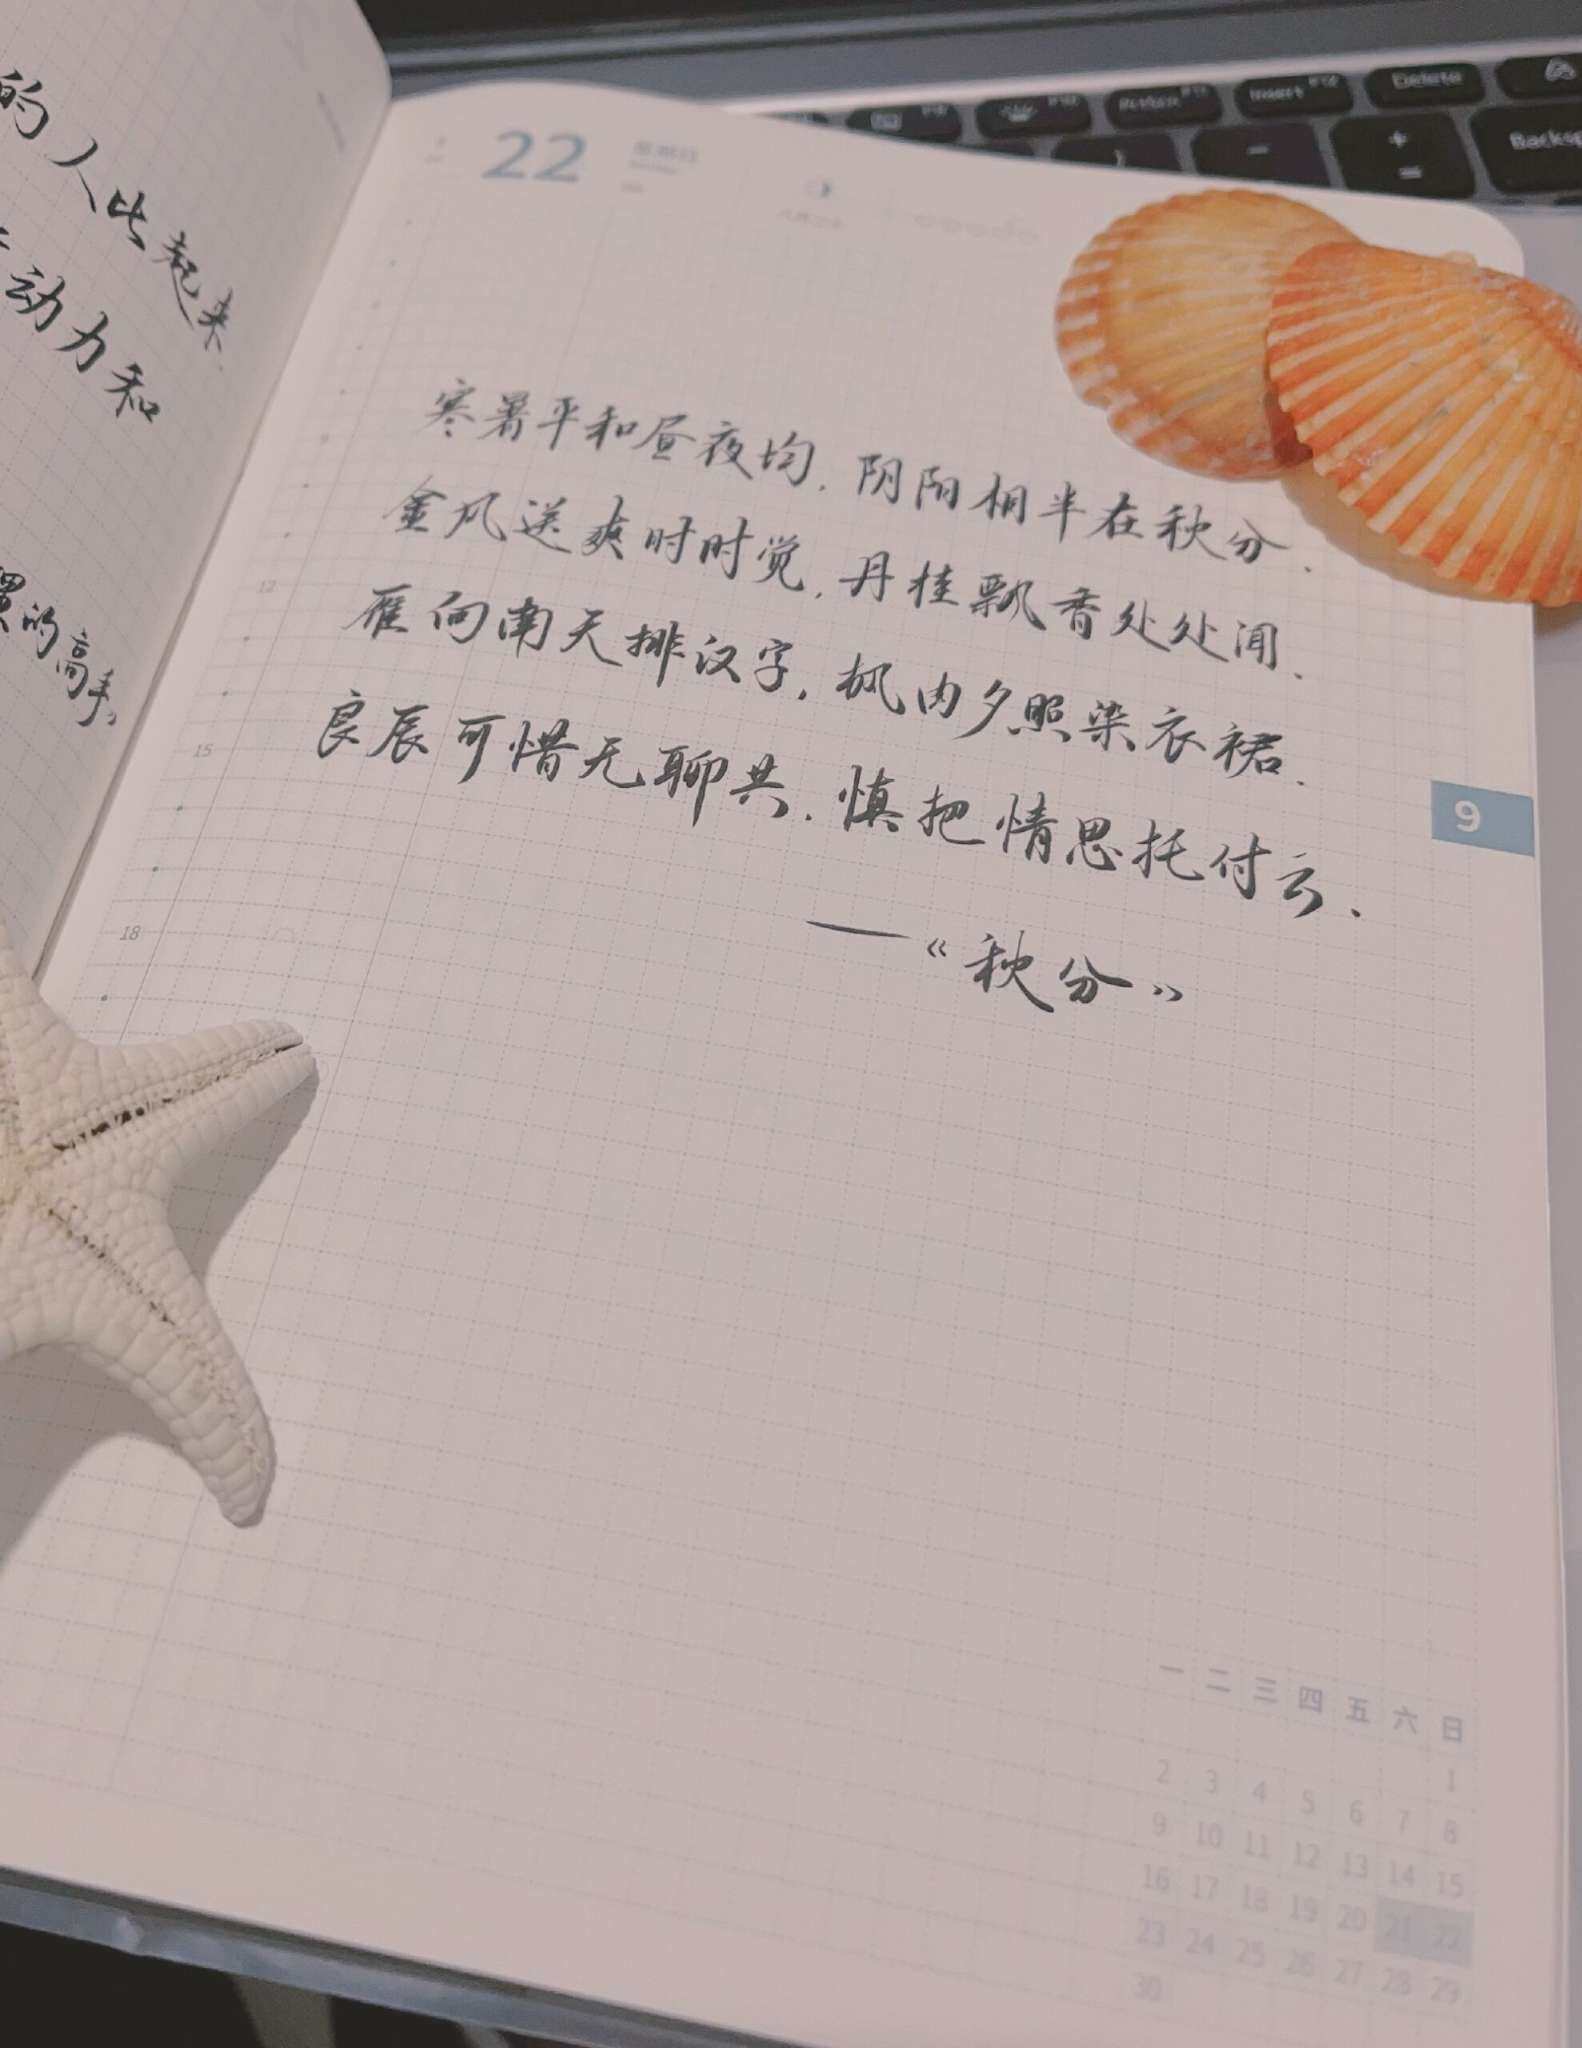 的人比起来
动力和
的高手,
22
星期日
寒暑平和昼夜均.阴阳相半在秋分.
金风送爽时时觉.丹桂飘香处处闻.
雁向南天排汉字.枫内夕照染衣裙.
良辰可惜无聊共.慎把情思托付云.
——《秋分》
9
12
15
18
一 二 三 四 五 六 日
1
2 3 4 5 6 7 8
9 10 11 12 13 14 15
16 17 18 19 20 21 22
23 24 25 26 27 28 29
30
Insert
Delete
+
=